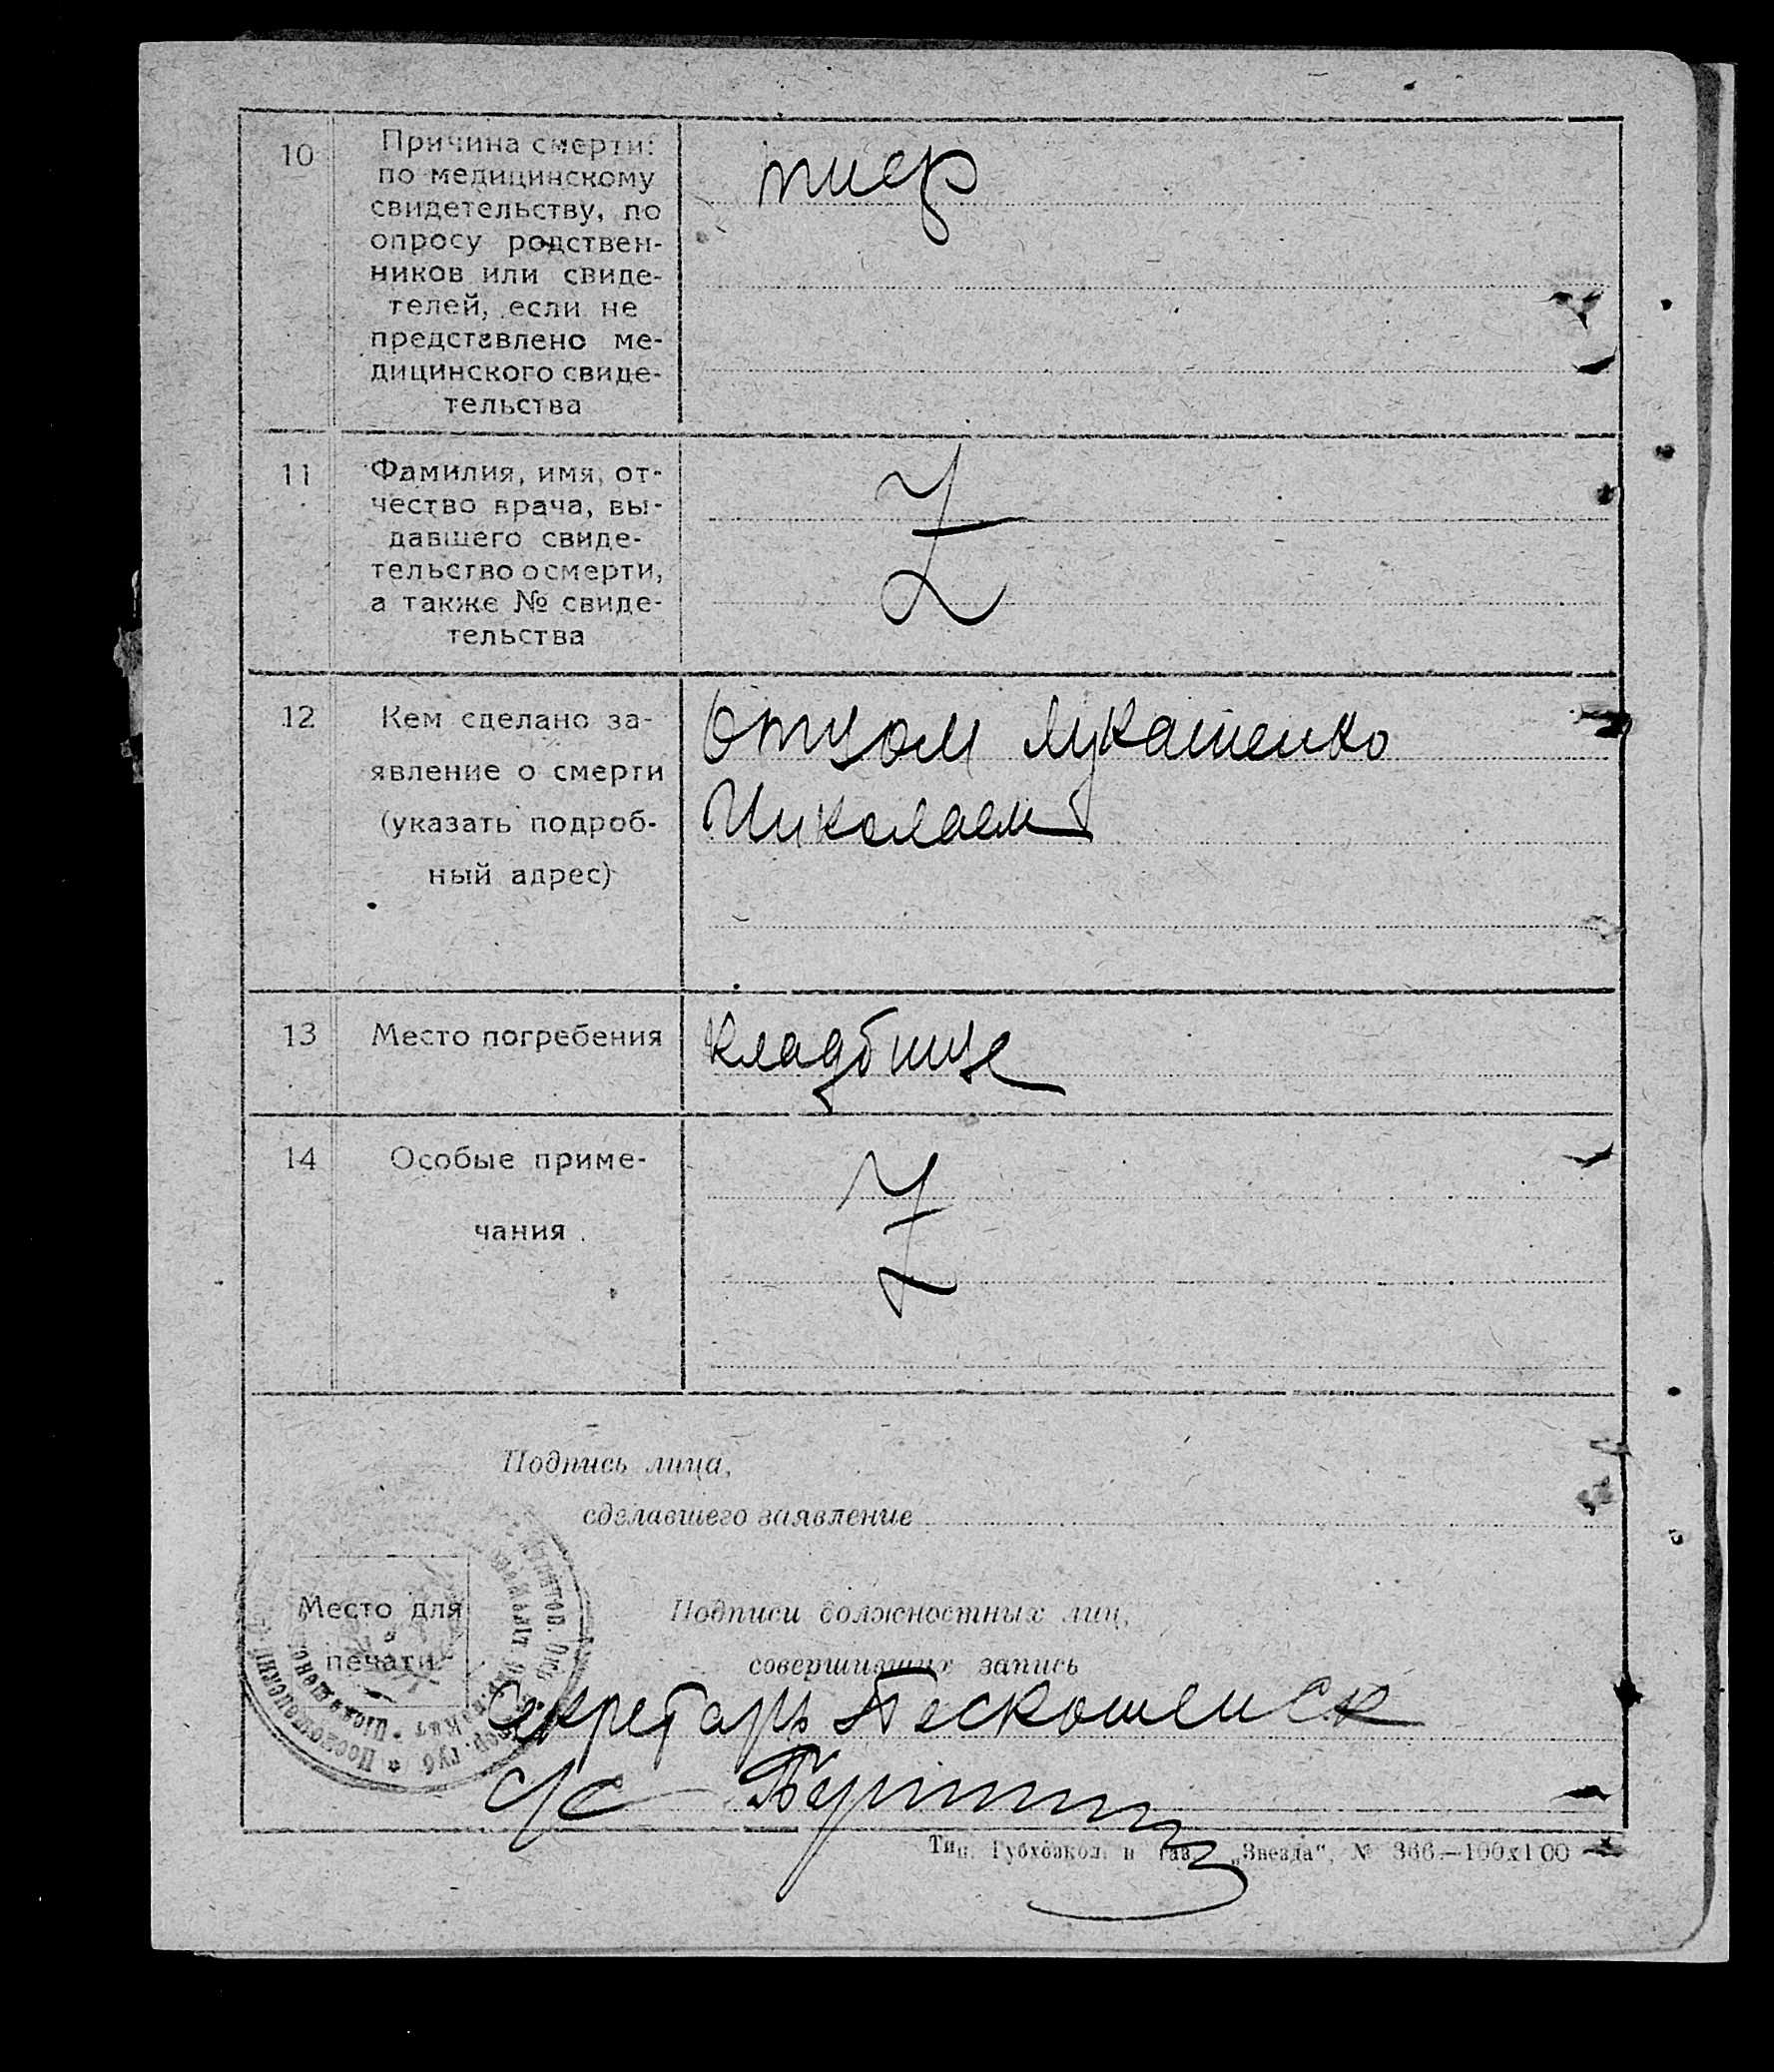 10
Причина смерти:
по медицинскому
свидетельству, по
опросу родствен-
ников или свиде-
телей, если не
представлено ме-
дицинского свиде-
тельства
11
Фамилия, имя, от-
чество врача, вы-
давшего свиде-
тельство о смерти,
а также № свиде-
тельства
Z
12
Кем сделано за-
явление о смерти
(указать подроб-
ный адрес)
Отцом Лукашенко
Николаем
13
Место погребения
Кладбище
14
Особые приме-
чания
Z
Подпись лица,
сделавшего заявление
Место для
печати
Подписи должностных лиц,
совершивших запись
Секретарь
с/с
Тип. Губхозкол. и газ. „Звезда“, № 366.—100х100